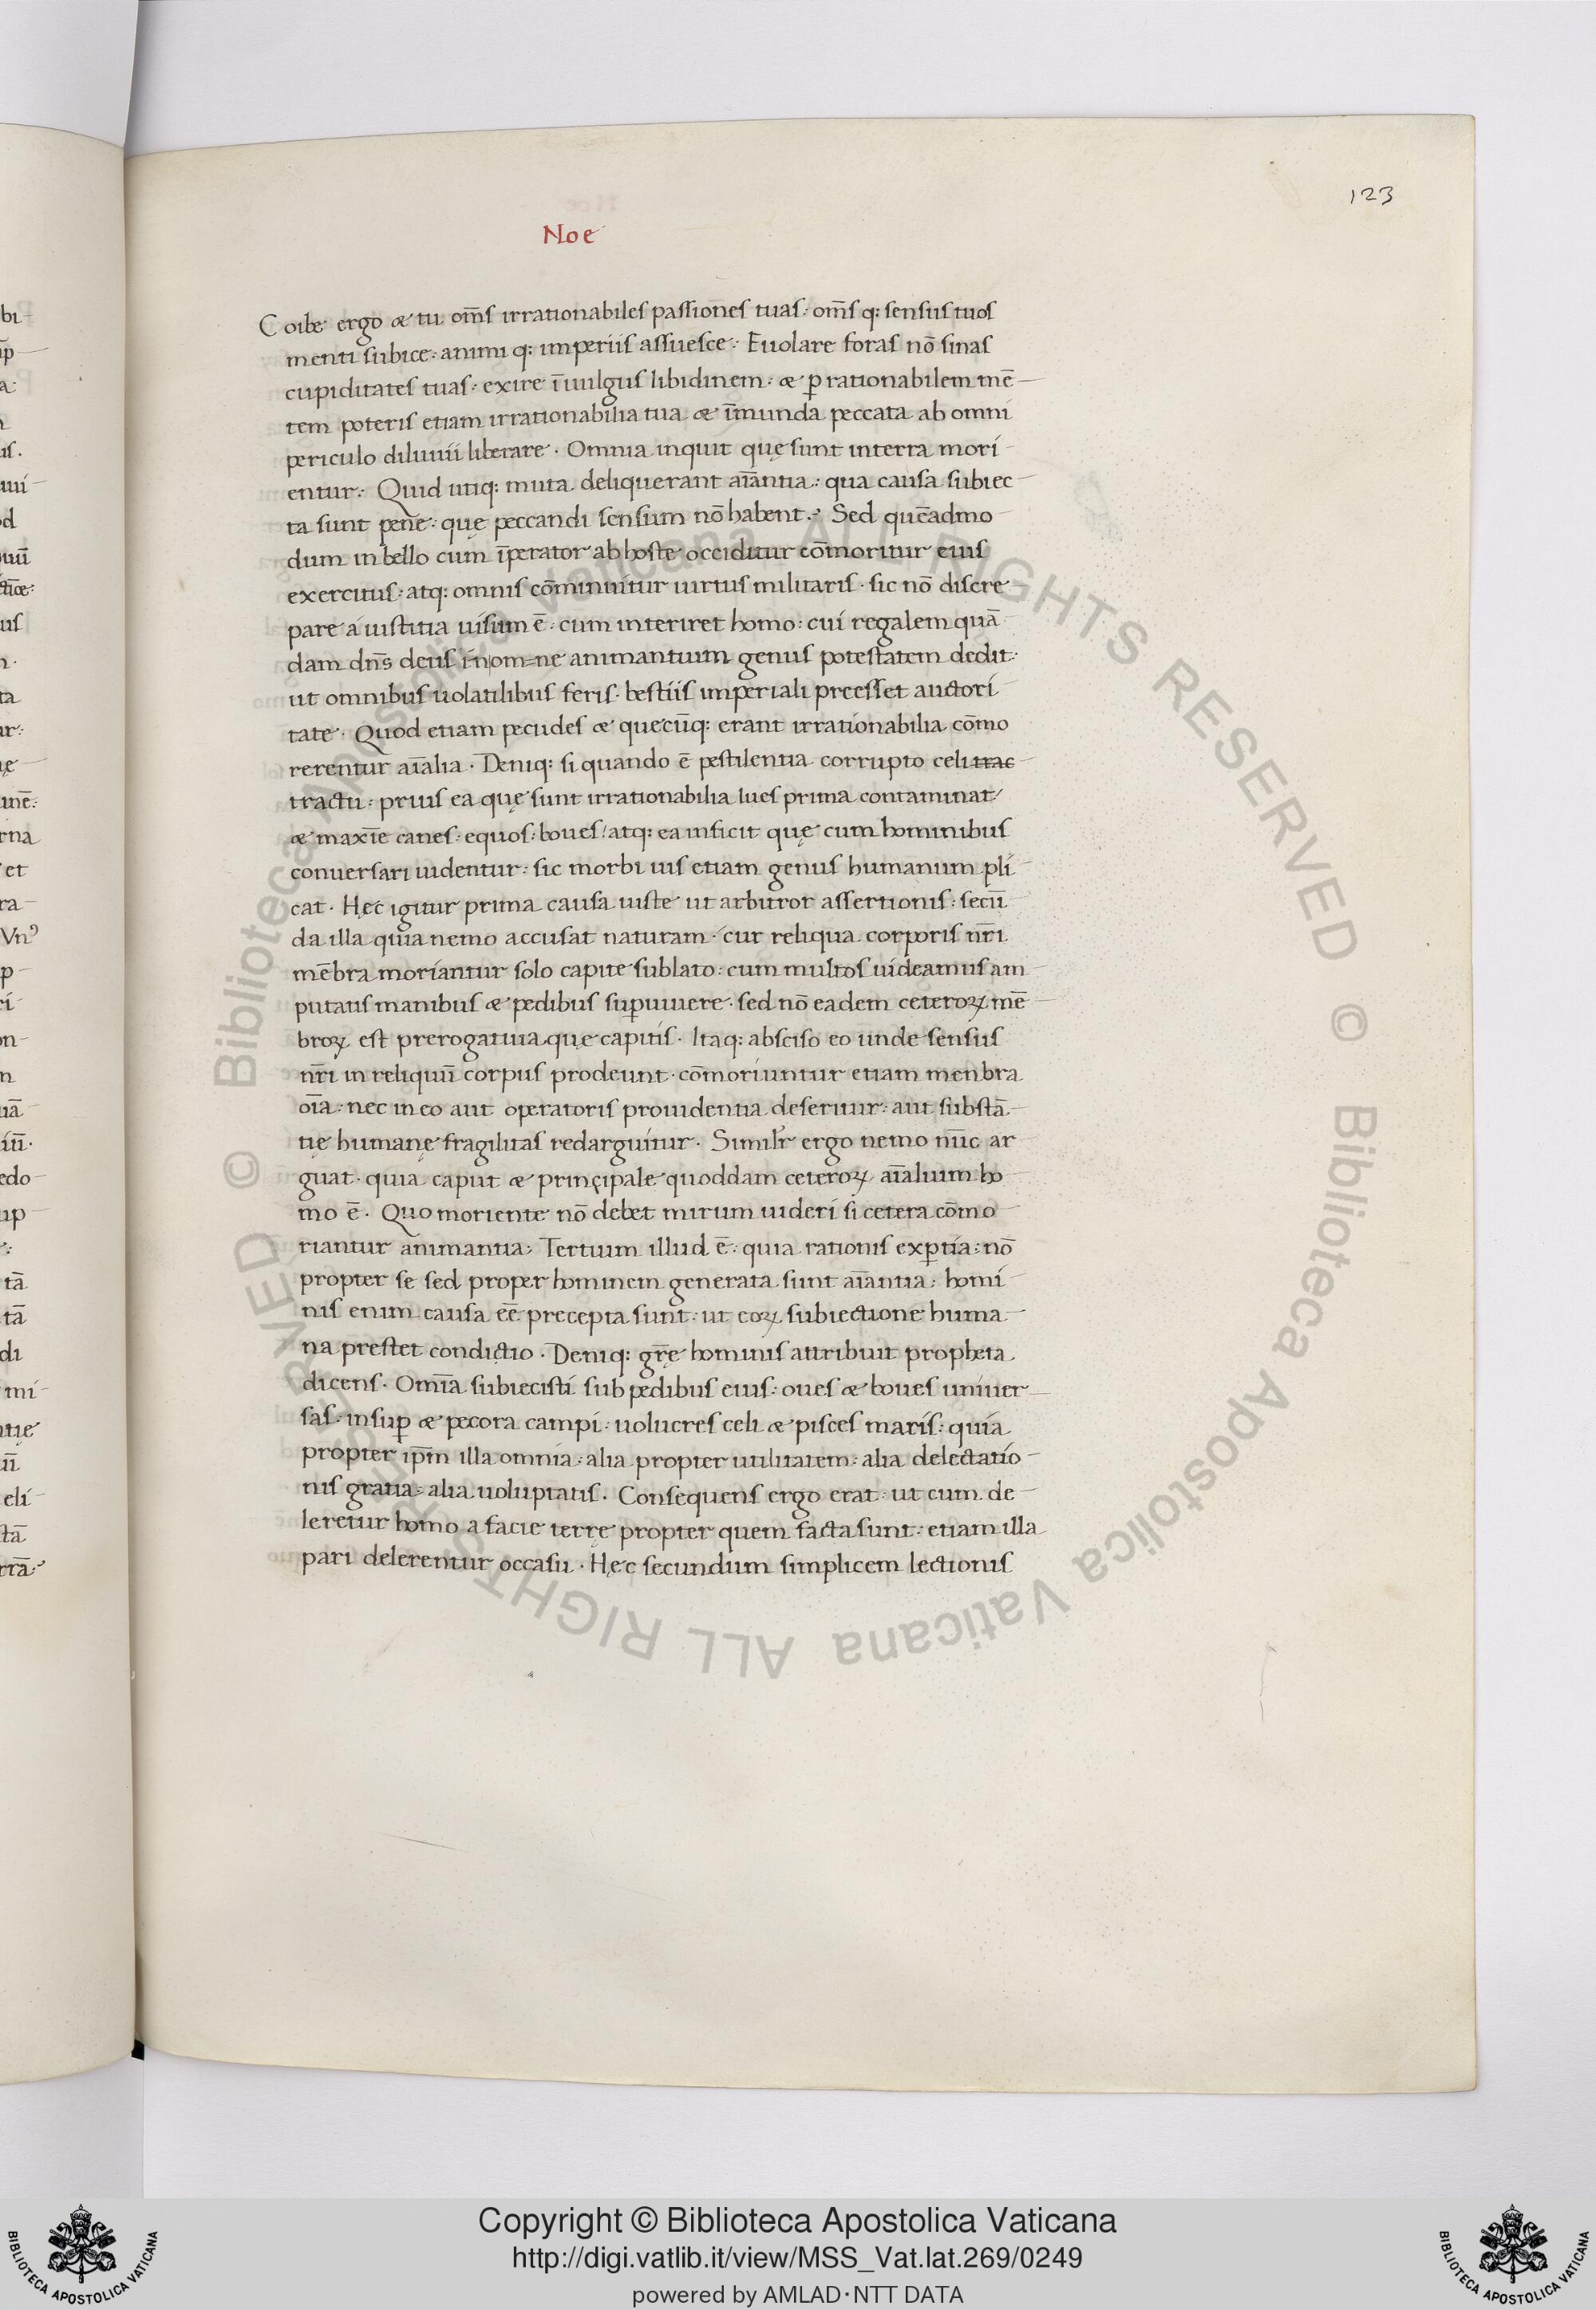 123
Noe
Coibe ergo æ tu om̄s irrationabiles passiones tuas· om̄s q: sensus tuos
menti subice: animi q: imperiis assuesce: Euolare foras nō sinas
cupiditates tuas: exire ī uulgus libidinem: æ ꝑ rationabilem mē-
tem poteris etiam irrationabilia tua æ īmunda peccata ab omni
periculo diluuii liberare · Omnia inquit quę sunt interra mori-
entur: Quid utiq: muta deliquerant aīantia: qua causa subiec-
ta sunt pene: quę peccandi sensum nō habent: Sed quēadmo
dum in bello cum īperator ab hoste occiditur cōmoritur eius
exercitus: atq: omnis cōminuitur uirtus militaris · sic nō discre-
pare a iustitia uisum ē: cum interiret homo: cui regalem quā
dam dn̄s deus in om=ne animantium genus potestatem dedit:
ut omnibus uolatilibus feris· bestiis imperiali preesset auctori
tate · Quod etiam pecudes æ quecūq: erant irrationabilia cōmo
rerentur aīalia · Deniq: si quando ē pestilentia corrupto celi trac
tractu: prius ea quę sunt irrationabilia lues prima contaminat/
æ maxīe canes: equos: boues: atq: ea inficit quę cum hominibus
conuersari uidentur: sic morbi uis etiam genus humanum pli
cat · Hęc igitur prima causa iuste ut arbitror assertionis: secū
da illa quia nemo accusat naturam· cur reliqua corporis nr̄i
mēbra moriantur solo capite sublato: cum multos uideamus am
putatis manibus æ pedibus suꝑuiuere · sed nō eadem ceteroꝝ mē
broꝝ est prerogatiua quę capitis · Itaq: absciso eo unde sensus
nr̄i in reliquū corpus prodeunt · cōmoriuntur etiam menbra
oīa: nec in eo aut operatoris prouidentia deseritur: aut substā
tię humanę fragilitas redarguitur · Similr̄ ergo nemo nūc ar
guat· quia caput æ prinçipale quoddam ceteroꝝ aīalium ho
mo ē · Quo moriente nō debet mirum uideri si cetera cōmo
riantur animantia: Tertium illud ē: quia rationis exꝑtia: nō
propter se sed proper hominem generata sunt aīantia: homi
nis enim causa eē precepta sunt: ut eoꝝ subiectione huma
na prestet condictio · Deniq: gr̄ę hominis attribuit propheta
dicens· Omīa subiecisti sub pedibus eius: oues æ boues uniuer
sas: insuꝑ æ pecora campi: uolucres celi æ pisces maris: quia
propter ip̄m illa omnia: alia propter utilitatem: alia delectatio-
nis gratia= alia uoluptatis · Consequens ergo erat: ut cum de-
leretur homo a facie terrę propter quem facta sunt: etiam illa
pari delerentur occasu · Hęc secundum simplicem lectionis
© Biblioteca Apostolica Vaticana ALL RIGHTS RESERVED © Biblioteca Apostolica Vaticana ALL RIGHTS RESERVED
Copyright © Biblioteca Apostolica Vaticana
http://digi.vatlib.it/view/MSS_Vat.lat.269/0249
powered by AMLAD·NTT DATA
BIBLIOTECA APOSTOLICA VATICANA
BIBLIOTECA APOSTOLICA VATICANA